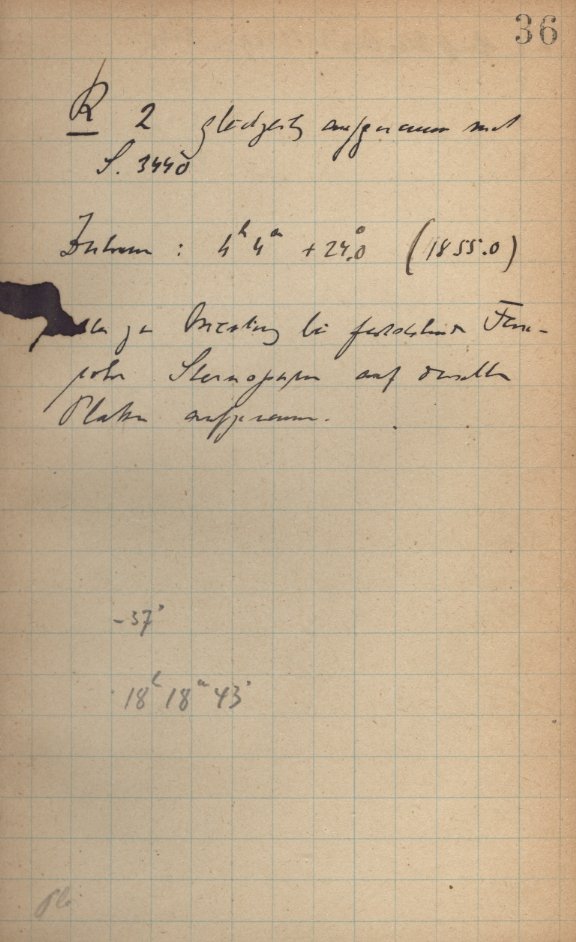 36
R 2 gleichzeitig aufgenommen mit
S. 3440
Zentrum : 4h 4m +24.°0 (1855.0)
zur bei feststehendem Fern-
rohr Sternspuren auf derselben
Platte aufgenommen.
-37'
18h 18m 43s